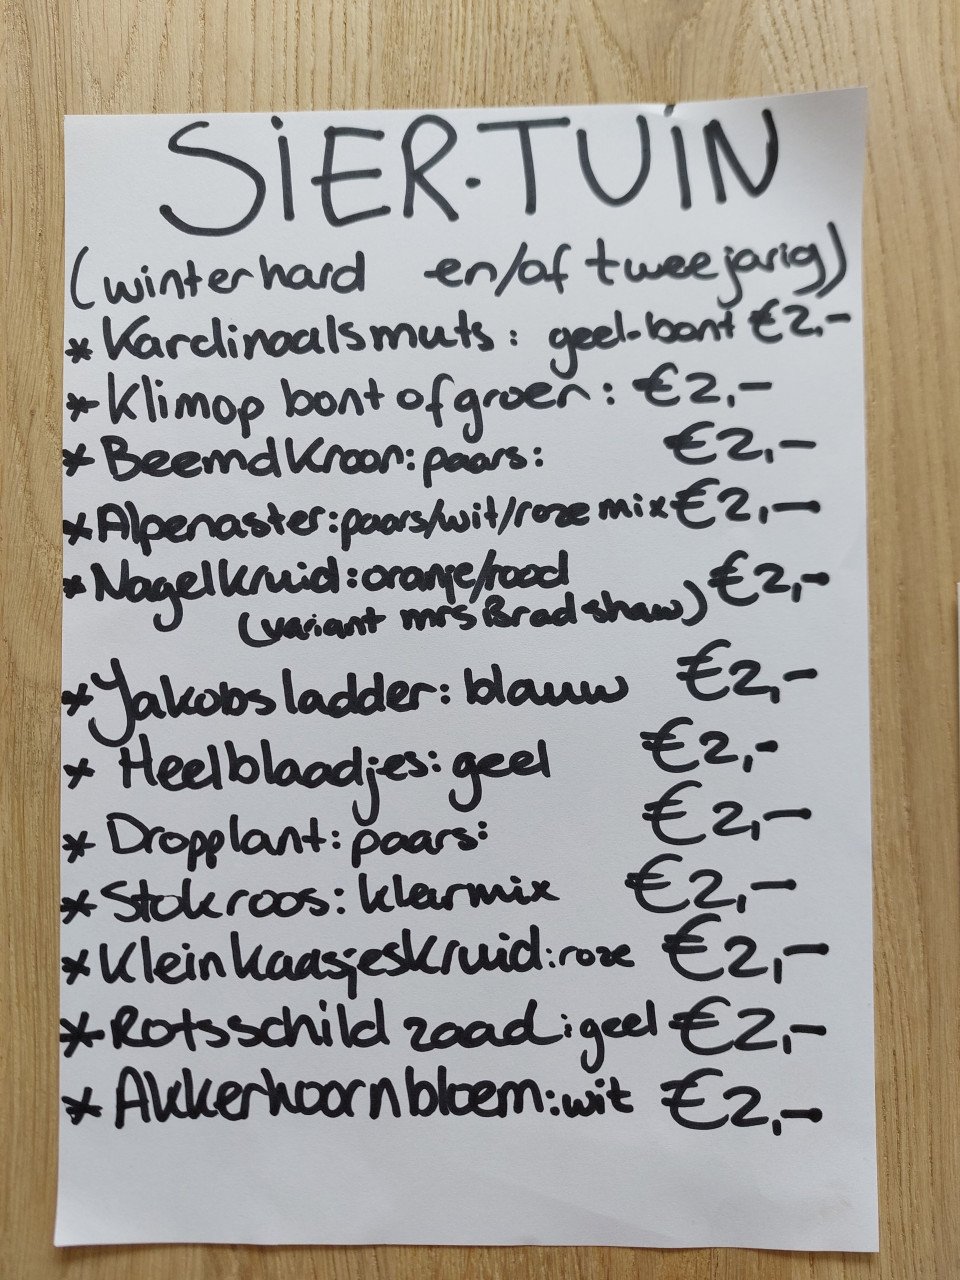 SiER-TUiN
(winterhard en/of tweejarig)
* Kardinaalsmuts: geel-bont €2,-
* Klimop bont of groen: €2,-
* Beemdkroon: paars: €2,-
* Alpenaster: paars/wit/roze mix €2,-
* Nagelkruid: oranje/rood €2,-
(variant mrs Bradshaw)
* Jakobsladder: blauw €2,-
* Heelblaadjes: geel €2,-
* Dropplant: paars: €2,-
* Stokroos: kleurmix €2,-
* Klein kaasjeskruid: roze €2,-
* Rotsschildzaad: geel €2,-
* Akkerhoornbloem: wit €2,-